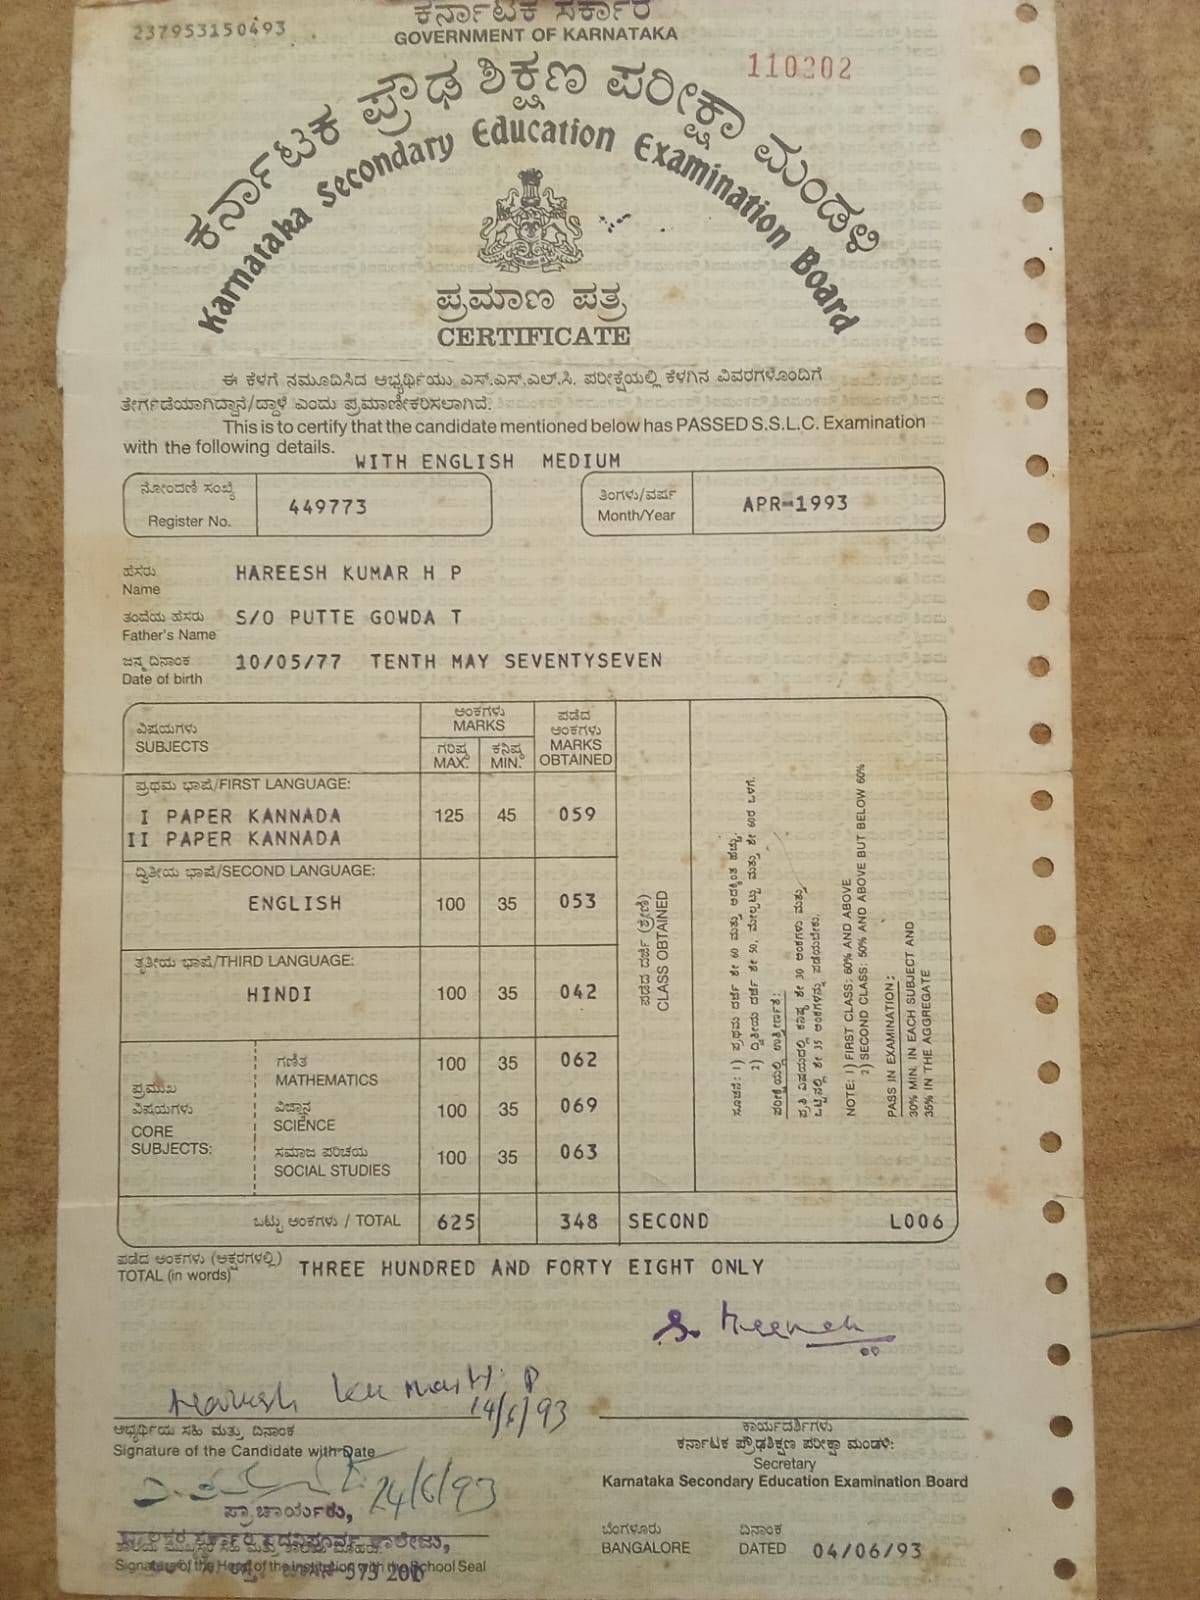 237953150493
ಕರ್ನಾಟಕ ಸರ್ಕಾರ
GOVERNMENT OF KARNATAKA
110202
ಕರ್ನಾಟಕ ಪ್ರೌಢ ಶಿಕ್ಷಣ ಪರೀಕ್ಷಾ ಮಂಡಳಿ
Karnataka Secondary Education Examination Board
ಪ್ರಮಾಣ ಪತ್ರ
CERTIFICATE
ಈ ಕೆಳಗೆ ನಮೂದಿಸಿದ ಅಭ್ಯರ್ಥಿಯು ಎಸ್.ಎಸ್.ಎಲ್.ಸಿ. ಪರೀಕ್ಷೆಯಲ್ಲಿ ಕೆಳಗಿನ ವಿವರಗಳೊಂದಿಗೆ
ತೇರ್ಗಡೆಯಾಗಿದ್ದಾನೆ/ದ್ದಾಳೆ ಎಂದು ಪ್ರಮಾಣೀಕರಿಸಲಾಗಿದೆ.
This is to certify that the candidate mentioned below has PASSED S.S.L.C. Examination
with the following details.
WITH ENGLISH MEDIUM
ನೋಂದಣಿ ಸಂಖ್ಯೆ
Register No. 449773
ತಿಂಗಳು/ವರ್ಷ
Month/Year APR-1993
ಹೆಸರು
Name HAREESH KUMAR H P
ತಂದೆಯ ಹೆಸರು
Father's Name S/O PUTTE GOWDA T
ಜನ್ಮ ದಿನಾಂಕ
Date of birth 10/05/77 TENTH MAY SEVENTYSEVEN
ವಿಷಯಗಳು
SUBJECTS
ಅಂಕಗಳು
MARKS
ಗರಿಷ್ಠ
MAX.
ಕನಿಷ್ಠ
MIN.
ಪಡೆದ
ಅಂಕಗಳು
MARKS
OBTAINED
ಪ್ರಥಮ ಭಾಷೆ/FIRST LANGUAGE:
I PAPER KANNADA 125 45 059
II PAPER KANNADA
ದ್ವಿತೀಯ ಭಾಷೆ/SECOND LANGUAGE:
ENGLISH 100 35 053
ತೃತೀಯ ಭಾಷೆ/THIRD LANGUAGE:
HINDI 100 35 042
ಪ್ರಮುಖ
ವಿಷಯಗಳು
CORE
SUBJECTS:
ಗಣಿತ
MATHEMATICS 100 35 062
ವಿಜ್ಞಾನ
SCIENCE 100 35 069
ಸಮಾಜ ಪರಿಚಯ
SOCIAL STUDIES 100 35 063
ಪಡೆದ ದರ್ಜೆ (ಶ್ರೇಣಿ)
CLASS OBTAINED
ಸೂಚನೆ: 1) ಪ್ರಥಮ ದರ್ಜೆ ಶೇ 60 ಮತ್ತು ಅದಕ್ಕಿಂತ ಹೆಚ್ಚು.
2) ದ್ವಿತೀಯ ದರ್ಜೆ ಶೇ 50, ಮೇಲ್ಪಟ್ಟು ಮತ್ತು ಶೇ 60ರ ಒಳಗೆ.
ಪರೀಕ್ಷೆಯಲ್ಲಿ ಉತ್ತೀರ್ಣತೆ:
ಪ್ರತಿ ವಿಷಯದಲ್ಲಿ ಕನಿಷ್ಠ ಶೇ 30 ಅಂಕಗಳು ಮತ್ತು
ಒಟ್ಟಿನಲ್ಲಿ ಶೇ 35 ಅಂಕಗಳನ್ನು ಪಡೆಯಬೇಕು.
NOTE: 1) FIRST CLASS: 60% AND ABOVE
2) SECOND CLASS: 50% AND ABOVE BUT BELOW 60%
PASS IN EXAMINATION:
30% MIN. IN EACH SUBJECT AND
35% IN THE AGGREGATE
ಒಟ್ಟು ಅಂಕಗಳು / TOTAL 625 348 SECOND L006
ಪಡೆದ ಅಂಕಗಳು (ಅಕ್ಷರಗಳಲ್ಲಿ)
TOTAL (in words) THREE HUNDRED AND FORTY EIGHT ONLY
Hareesh Kumar H. P
14/6/93
ಅಭ್ಯರ್ಥಿಯ ಸಹಿ ಮತ್ತು ದಿನಾಂಕ
Signature of the Candidate with Date
24/6/93
ಪ್ರಾಚಾರ್ಯರು,
ಸರ್ಕಾರಿ ಪದವಿಪೂರ್ವ ಕಾಲೇಜು,
Signature of the Head of the Institution with the School Seal
573 201
ಕಾರ್ಯದರ್ಶಿಗಳು
ಕರ್ನಾಟಕ ಪ್ರೌಢಶಿಕ್ಷಣ ಪರೀಕ್ಷಾ ಮಂಡಳಿ:
Secretary
Karnataka Secondary Education Examination Board
ಬೆಂಗಳೂರು ದಿನಾಂಕ
BANGALORE DATED 04/06/93